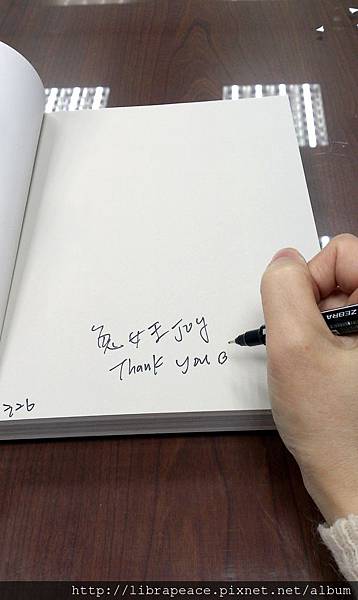 兔女王 Joy
Thank you
226
ZEBRA
http://librapeace.pixnet.net/album